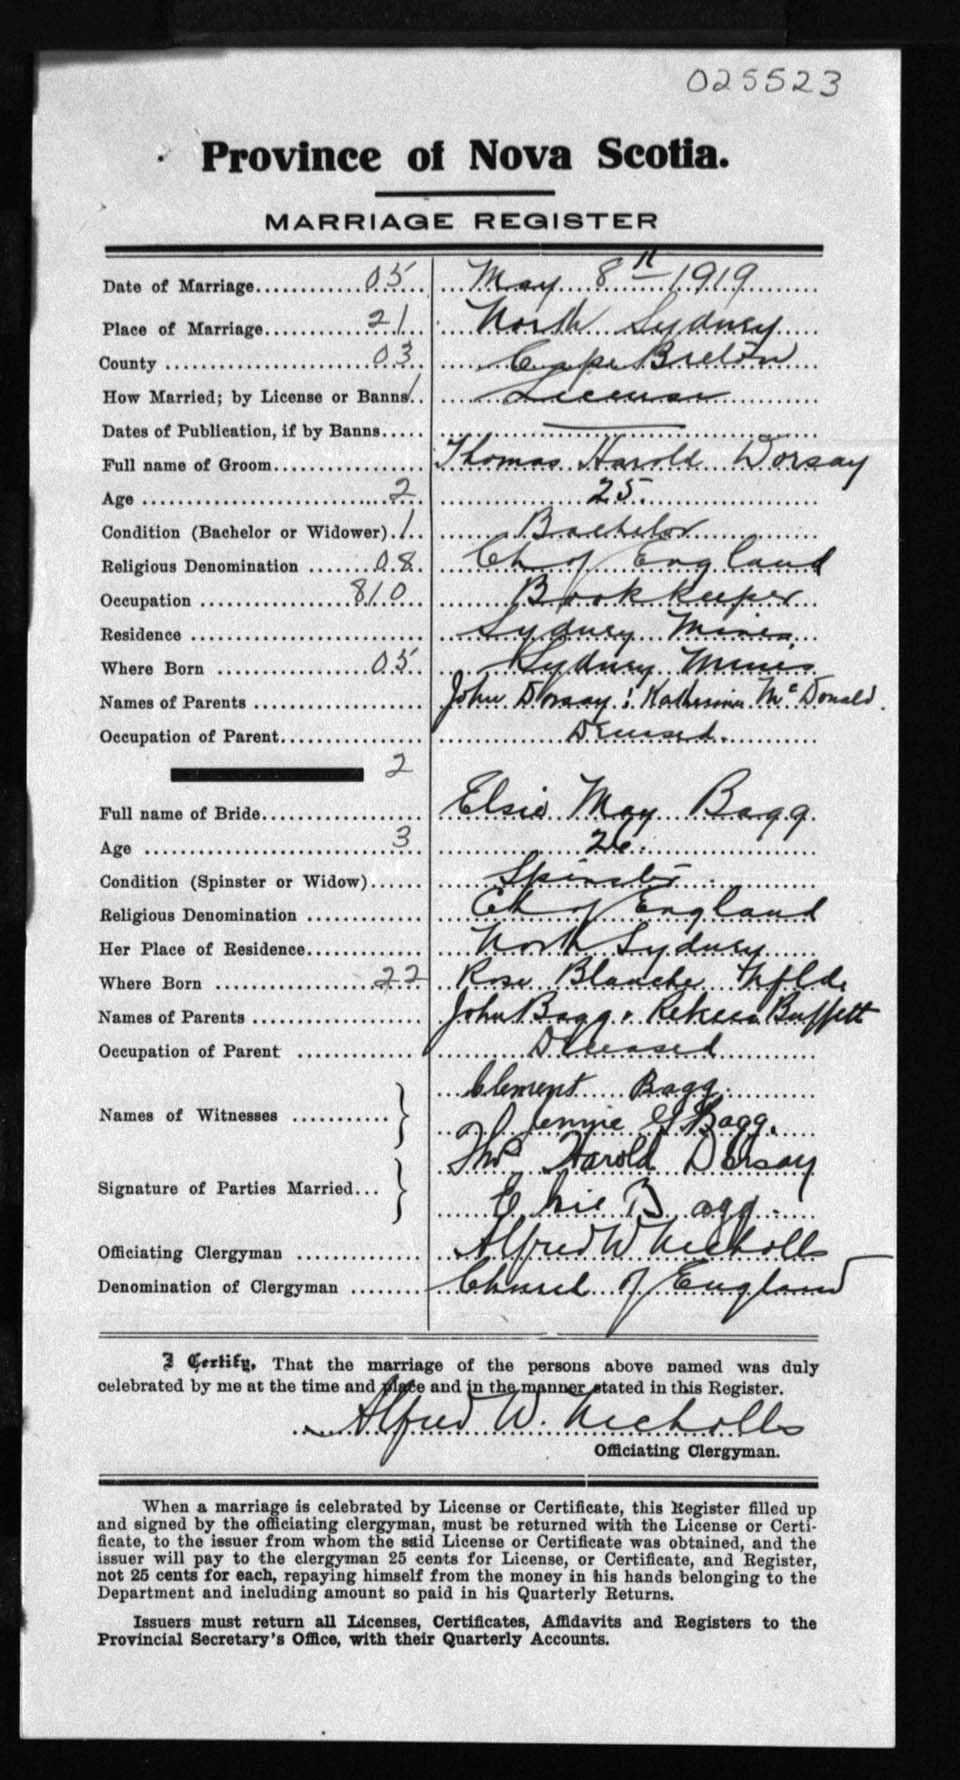 025523
Province of Nova Scotia.
MARRIAGE REGISTER
Date of Marriage............05.... May 8th 1919
Place of Marriage............21... North Sydney
County ............03... Cape Breton
How Married; by License or Banns 1.. License
Dates of Publication, if by Banns..... ———
Full name of Groom................. Thomas Harold Dorsay
Age ............2... 25.
Condition (Bachelor or Widower).1.. Bachelor
Religious Denomination ......08. Ch of England
Occupation ............810.. Bookkeeper
Residence ............ Sydney Mines
Where Born ............05.. Sydney Mines
Names of Parents ............ John Dorsay : Katherine McDonald.
Occupation of Parent............ Deceased.
2
Full name of Bride............ Elsie May Bagg.
Age ............3... 26.
Condition (Spinster or Widow)...... Spinster
Religious Denomination ............ Ch of England
Her Place of Residence............ North Sydney
Where Born ............22 Rose Blanche Nfld.
Names of Parents ............ John Bagg. Rebecca Buffett
Occupation of Parent ............ Deceased
Names of Witnesses ............ } Clement Bagg.
Jennie G Bagg.
Signature of Parties Married... } Thos Harold Dorsay
Elsie Bagg.
Officiating Clergyman ............ Alfred W Nicholls
Denomination of Clergyman ........ Church of England
I Certify, That the marriage of the persons above named was duly
celebrated by me at the time and place and in the manner stated in this Register.
Alfred W. Nicholls
Officiating Clergyman.
When a marriage is celebrated by License or Certificate, this Register filled up
and signed by the officiating clergyman, must be returned with the License or Certi-
ficate, to the issuer from whom the said License or Certificate was obtained, and the
issuer will pay to the clergyman 25 cents for License, or Certificate, and Register,
not 25 cents for each, repaying himself from the money in his hands belonging to the
Department and including amount so paid in his Quarterly Returns.
Issuers must return all Licenses, Certificates, Affidavits and Registers to the
Provincial Secretary's Office, with their Quarterly Accounts.